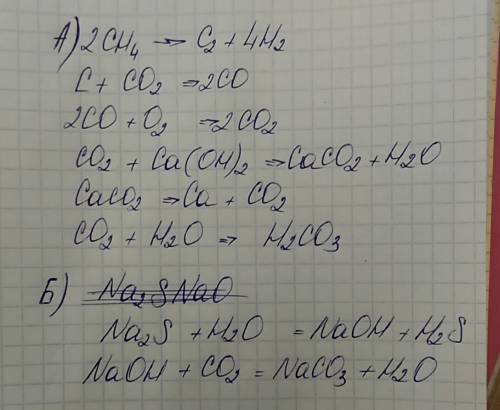 А) 2CH4 → C2 + 4H2
C + CO2 ⇒ 2CO
2CO + O2 ⇒ 2CO2
CO2 + Ca(OH)2 ⇒ CaCO2 + H2O
CaCO2 ⇒ Ca + CO2
CO2 + H2O ⇒ H2CO3
Б) Na2SNaO
Na2S + H2O = NaOH + H2S
NaOH + CO2 = NaCO3 + H2O